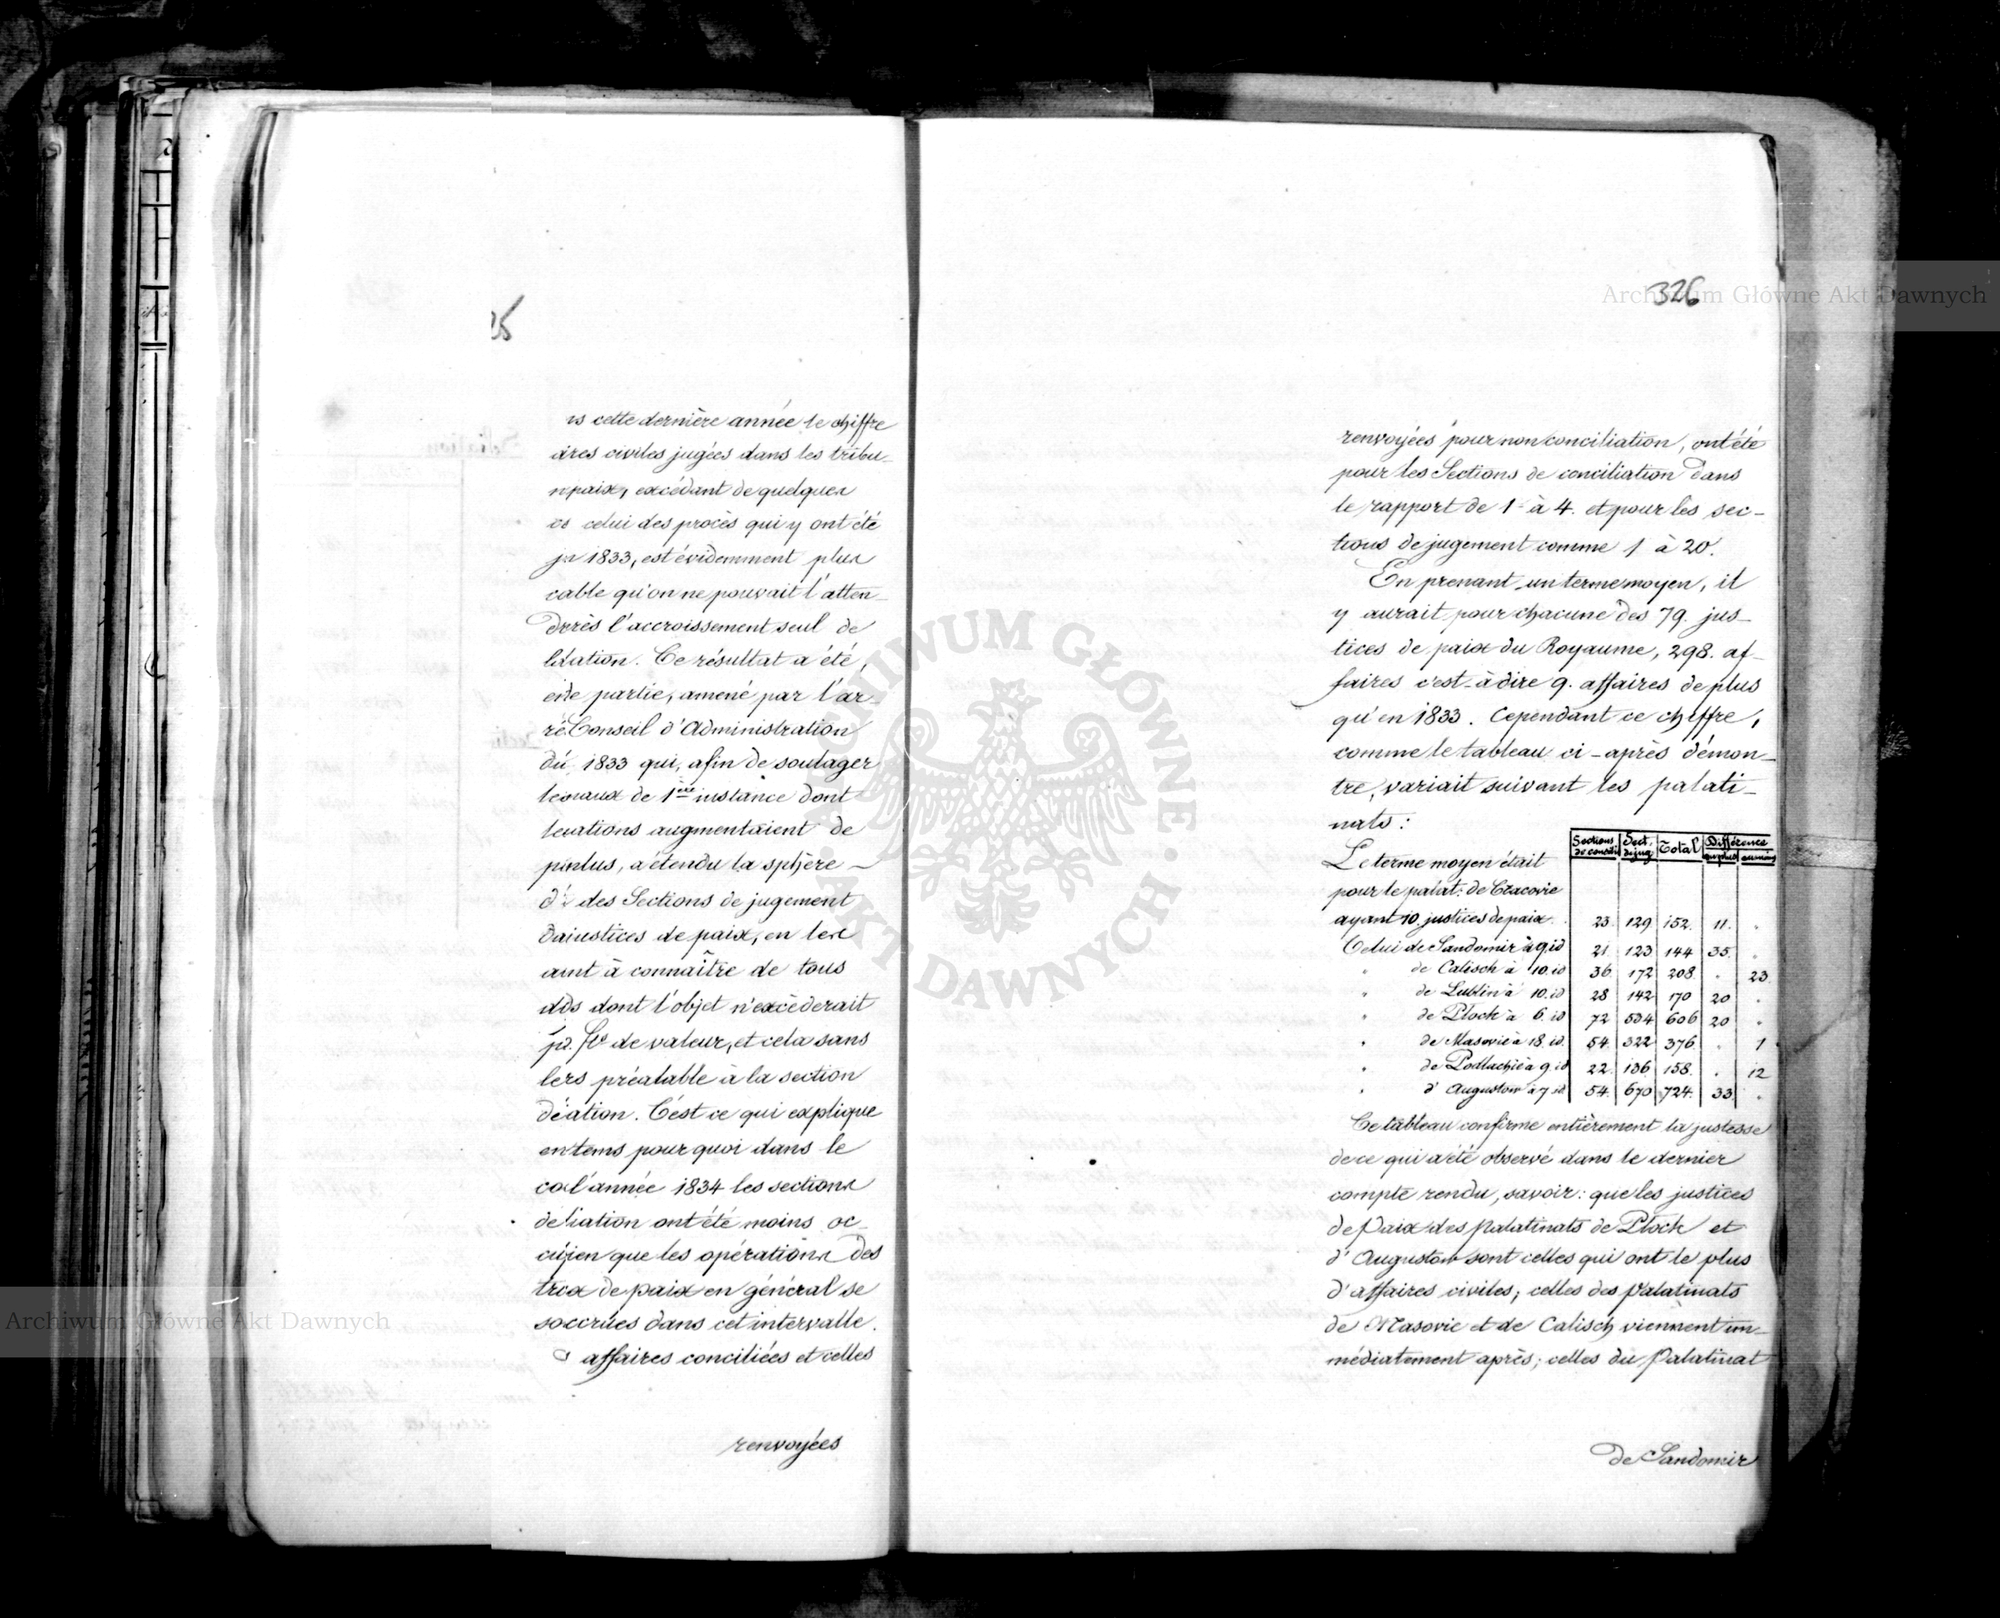 25
s cette dernière année le chiffre
aires civiles jugées dans les tribu-
paix, excédant de quelques
celui des procès qui y ont été
1833, est évidemment plus
cable qu'on ne pouvait l'atten-
près l'accroissement seul de
lation. Ce résultat a été,
partie, amené par l'ar-
Conseil d'Administration
1833 qui, afin de soulager
naux de 1ère instance dont
ations augmentaient de
plus, a étendu la sphère
des Sections de jugement
justices de paix, en les
ant à connaître de tous
dont l'objet n'excéderait
fl. de valeur, et cela sans
préalable à la section
iation. C'est ce qui explique
en tems pourquoi dans le
l'année 1834 les sections
liation ont été moins oc-
bien que les opérations des
de paix en général se
accrues dans cet intervalle.
affaires conciliées et celles
renvoyées
326
renvoyées pour non conciliation, ont été
pour les Sections de conciliation dans
le rapport de 1 à 4. et pour les sec-
tions de jugement comme 1 à 20.
En prenant un terme moyen, il
y aurait pour chacune des 79. jus-
tices de paix du Royaume, 298. af-
faires c'est-à dire 9. affaires de plus
qu'en 1833. Cependant ce chiffre,
comme le tableau ci-après démon-
tre, variait suivant les palati-
nats:
Sections de concili Sect. de jug Total Différence en plus en moins
Le terme moyen était
pour le palat: de Cracovie
ayant 10 justices de paix. 23. 129 152. 11. "
Celui de Sandomir à 9. id 21 123 144 35. "
" de Calisch à 10. id 36 172 208 " 23.
" de Lublin à 10. id 28 142 170 20 "
" de Plock à 6. id 72 534 606 20 "
" de Masovie à 18. id. 54. 322 376. " 1
" de Podlachie à 9. id 22. 136 158. " 12
" d'Augustow à 7 id. 54. 670 724. 33 "
Ce tableau confirme entièrement la justesse
de ce qui a été observé dans le dernier
compte rendu, savoir: que les justices
de Paix des Palatinats de Plock et
d'Augustow sont celles qui ont le plus
d'affaires civiles; celles des Palatinats
de Masovie et de Calisch viennent im-
médiatement après; celles du Palatinat
de Sandomir
Archiwum Główne Akt Dawnych
Archiwum Główne Akt Dawnych
ARCHIWUM GŁÓWNE AKT DAWNYCH